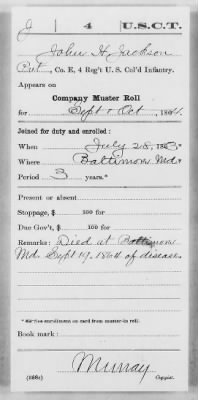 J 4 U.S.C.T.
John H. Jackson
Pvt, Co. E, 4 Reg't U. S. Col'd Infantry.
Appears on
Company Muster Roll
for Sept & Oct, 1864.
Joined for duty and enrolled:
When July 28, 1863*
Where Baltimore Md.
Period 3 years.*
Present or absent
Stoppage, $ 100 for
Due Gov't, $ 100 for
Remarks: Died at Baltimore
Md. Sept 19, 1864 of disease
* See enrollment on card from muster-in roll.
Book mark:
Murray
(358c) Copyist.